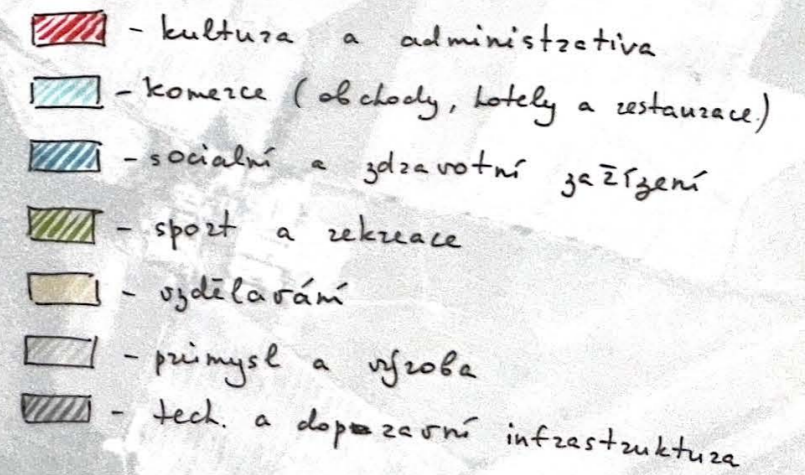 - kultura a administrativa
- komerce (obchody, hotely a restaurace)
- socialní a zdravotní zařízení
- sport a rekreace
- vzdělavání
- průmysl a výroba
- tech. a dopravní infrastruktura